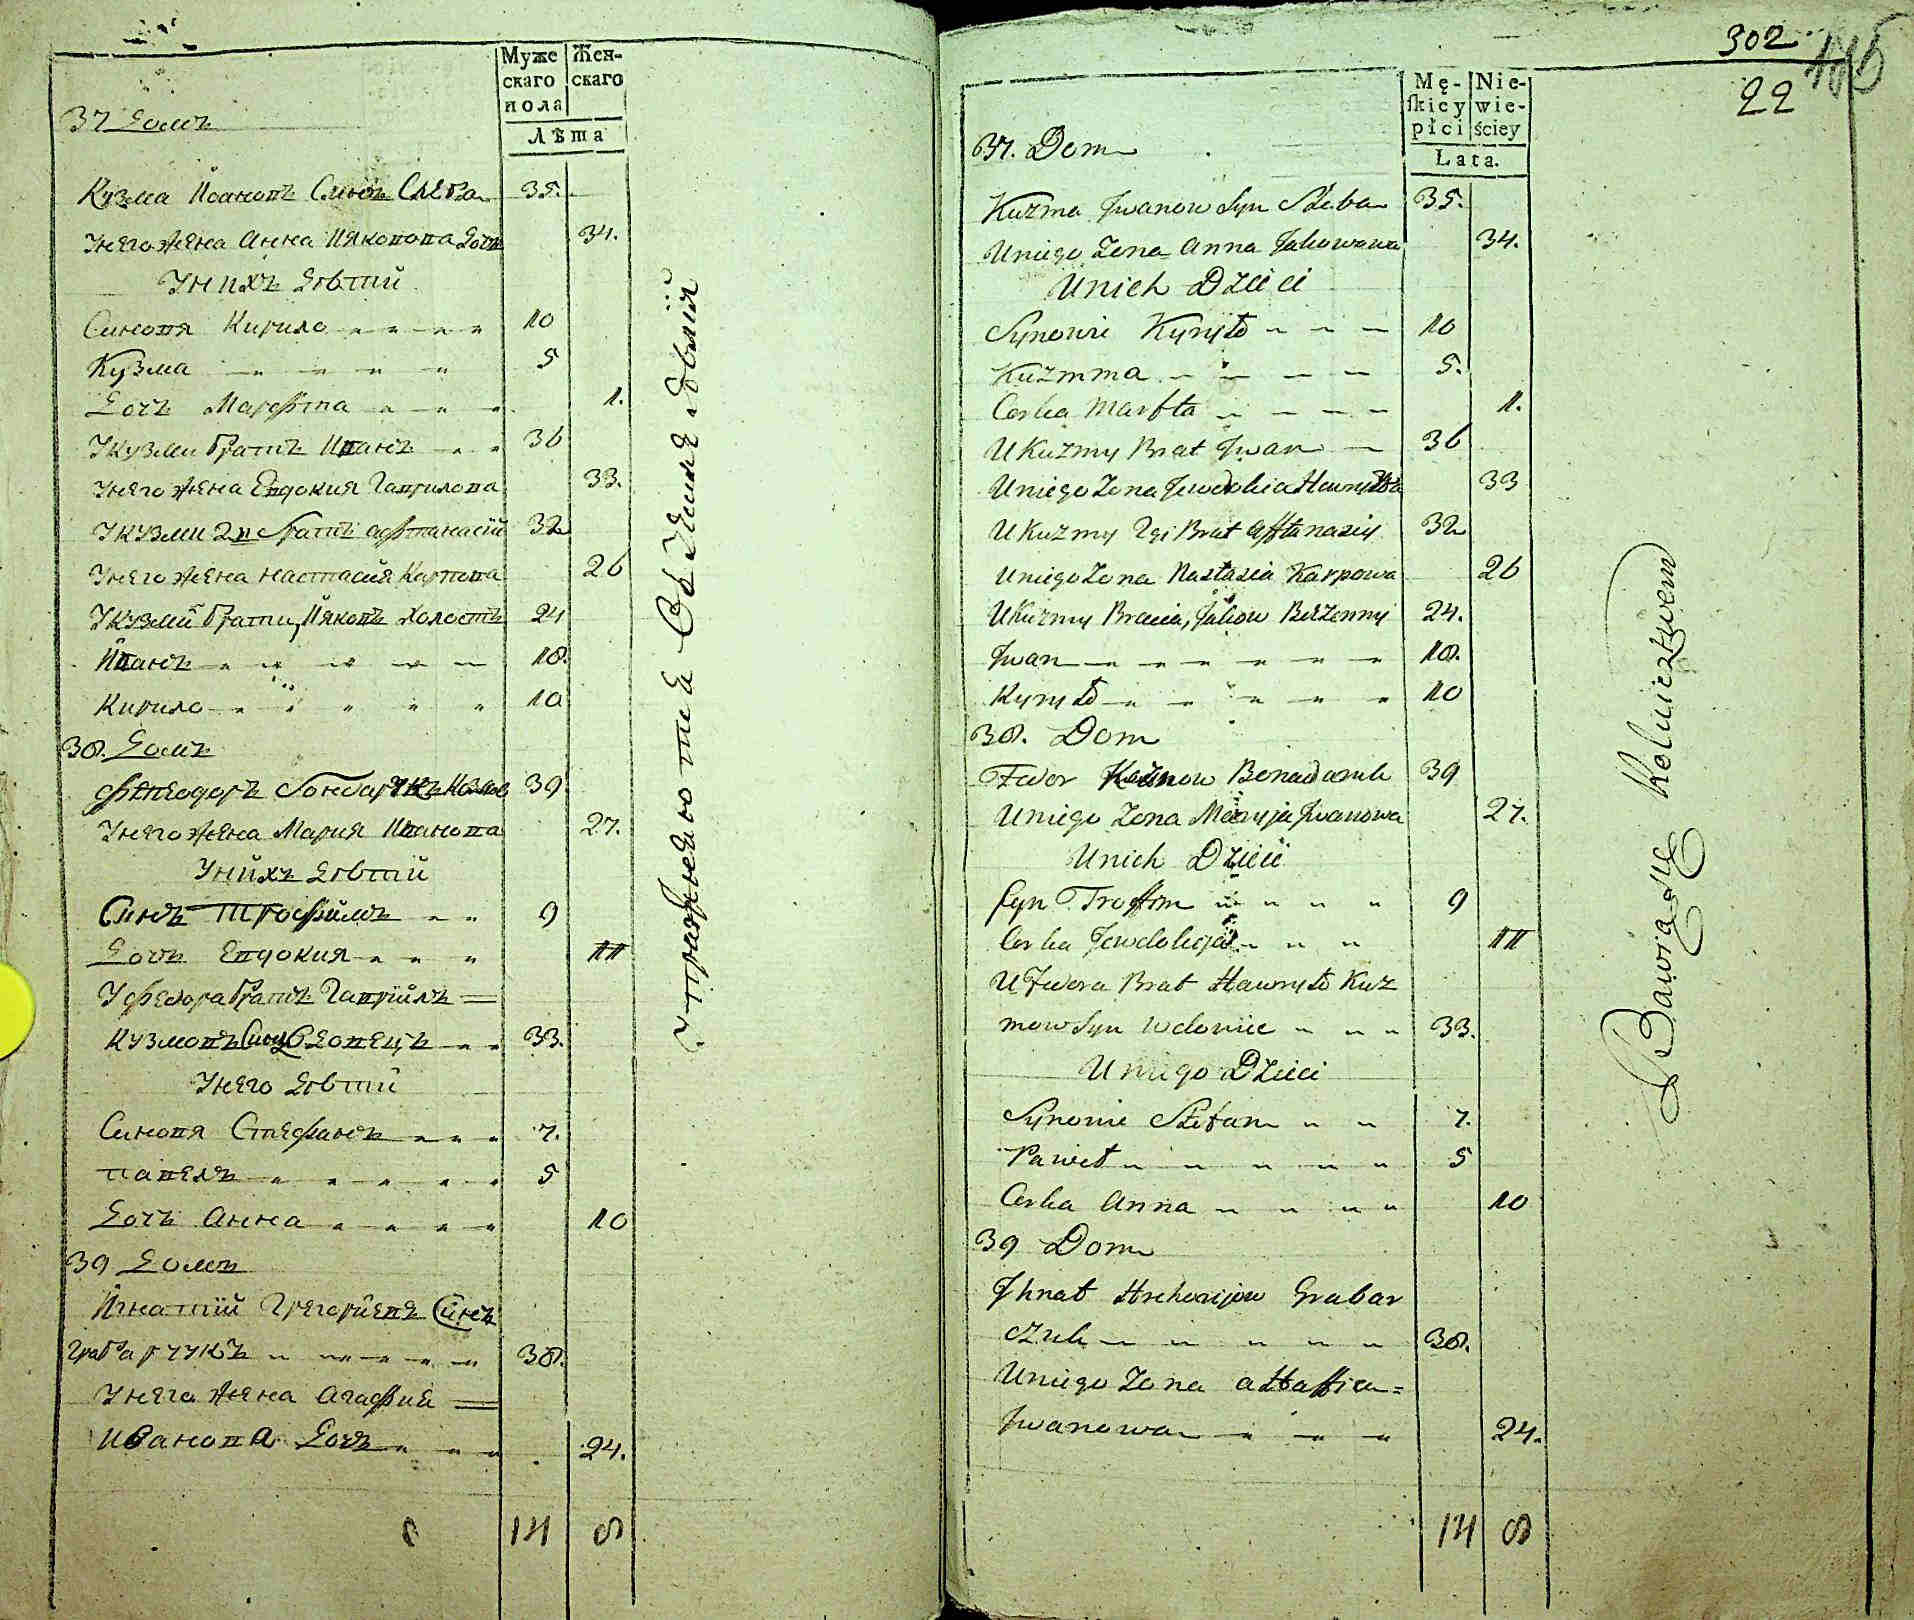 Муже
скаго
пола
Жен-
скаго
Лѣта
37 Домъ
Кузма Ивановъ Синъ Слеба 35.
Унего жена Анна Ияковова Дочь 34.
Унихъ Дѣтий
Синовя Кирило 10
Кузма 5
Дочъ Марфта 1.
Укузми братъ Иванъ 36
Унего жена Евдокия Гаврилова 33.
Укузми 2й братъ Афтанасий 32
Унего жена Настасия Карпова 26
Укузми брати, Ияковъ холостъ 24
Иванъ 18.
Кирило 10
38. Домъ
Фтеодоръ 39
Унего жена Мария Иванова 27.
Унихъ Дѣтий
Синъ Трофимъ 9
Дочъ Евдокия 11
Уфедора братъ Гаврилъ
Кузмовъ Синъ Вдовецъ 33.
Унего Дѣтий
Синовя Стефанъ 7.
Павелъ 5
Дочъ Анна 10
39 Домъ
Игнатий Грегориевъ Синъ
Грабарчукъ 38.
Унего жена Агафия
Иванова Дочъ 24.
14 8
302
22
Mę-
ſkiey
płci
Nie-
wie-
ściey
Lata.
37. Dom
Kuzma Jwanow Syn Sleba 35.
Uniego Zona Anna Jakowowa 34.
Unich Dzieci
Synowie Kyryło 10
Kuzmma 5.
Corka Marfta 1.
U Kuzmy Brat Jwan 36
Uniego Zona Jewdokia Hawryłowa 33
U Kuzmy 2gi Brat Afftanaziy 32
Uniego Zona Nastazia Karpowa 26
U Kuzmy Bracia, Jakow Bezżenny 24.
Jwan 18.
Kyryło 10
38. Dom
Fedor 39
Uniego Zona Maryja Jwanowa 27.
Unich Dzieci
Syn Troffim 9
Corka Jewdokija 11
U Fedora Brat Hawryło Kuz
mow Syn Wdowiec 33.
Uniego Dzieci
Synowie Stefan 7.
Paweł 5
Corka Anna 10
39 Dom
Jhnat Hrehorijow Grabar
czuk 38.
Uniego Zona
Jwanowa 24.
14 8
Bawią się Rolnictwem